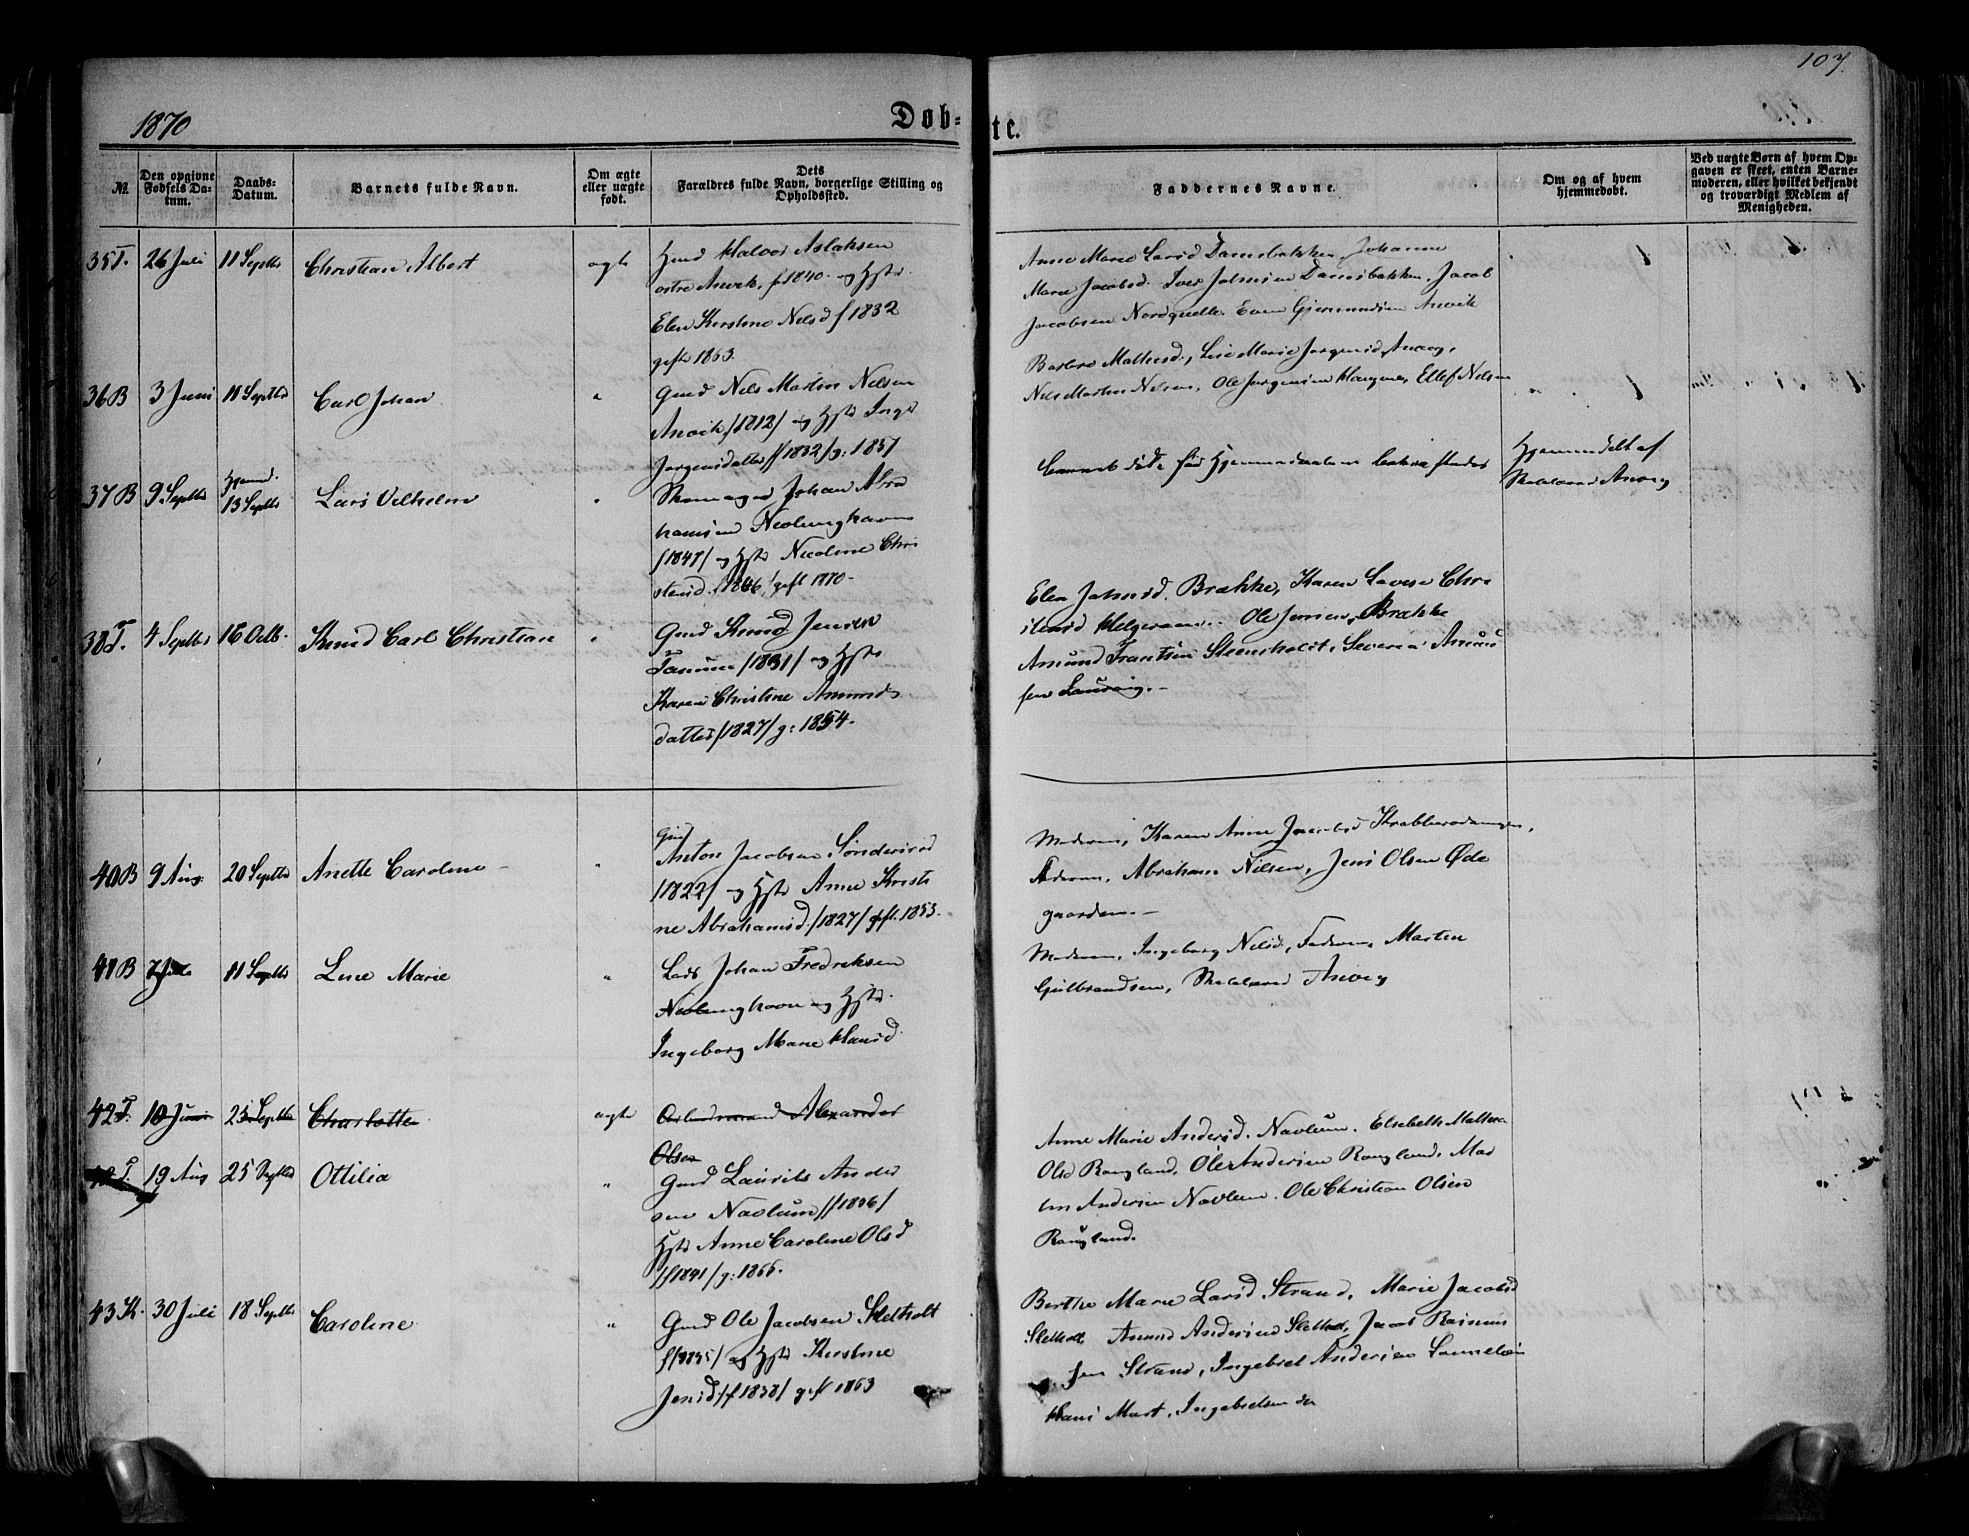 107.
1870
Døb-
te.
№
Den opgivne Fødsels Datum.
Daabs-Datum.
Barnets fulde Navn.
Om ægte eller uægte født.
Dets Forældres fulde Navn, borgerlige Stilling og Opholdssted.
Faddernes Navne.
Om og af hvem hjemmedøbt.
Ved uægte Børn af hvem Opgaven er skeet, enten Barnemoderen, eller hvilket bekjendt og troværdigt Medlem af Menigheden.
35T. 26 Juli 11 Septbr Christian Albert ægte
Gmd Halvor Aslaksen
østre Anvik, f 1840 og Hstr
Elen Kirstine Nilsd f 1832
gift 1863.
Anne Marie Larsd Damsbakken, Johanne
Marie Jacobsd. Iver Johnsen Damsbakken, Jacob
Jacobsen Nordquelle. Even Gjermundsen Anvik
36B 3 Juni 11 Septbr Carl Johan "
Gmd Nels Martin Nelsen
Anvik /1812/ og Hstr Inge
Jørgensdatter /f 1832/ g: 1857
Barbro Mathisd., Lise Marie Jørgensd, Anvig,
Nils Marthin Nilsen, Ole Jørgensen, Ellef Nilsen
37B 9 Septbr Hjemd. 13 Septbr Lars Vilhelm "
Skomager Johan Abra
hamsen Nevlunghavn
/1847/ og Hstr Nicoline Chri
stensd. /1846/ gift 1870.
Barnet døde før Hjemmedaaben
Hjemmedøbt af
Skolelærer Anvig
38T. 4 Septbr 16 Octb. Knud Carl Christian "
Gmd Knud Jensen
Tanum /1831/ og Hstr
Karen Christine Amunds
datter /1827/ g: 1854.
Elen Johnsd. Brække, Karen Lovise Chri
stensd Helgeraaen. Ole Jensen, Brække
Amund Frantsen Steensholdt, Severin Amund
sen Laurvig.
40B 9 Aug. 20 Septbr Anette Caroline "
Gmd
Anton Jacobsen Sønderød
/1822/ og Hstr Anne Kirsti
ne Abrahamsd. /1827/ gift. 1853.
Moderen, Karen Anne Jacobsd Krabberødungen,
Faderen, Abraham Nilsen, Jens Olsen Øde
gaarden.
41B 11 Septbr Line Marie "
Lods Johan Fredriksen
Nevlunghavn og Hstr.
Ingeborg Marie Hansd.
Moderen, Ingeborg Nilsd, Faderen, Morten
Gulbrandsen, Skolelærer Anvig
42T. 10 Juni 25 Septbr Charlotte ægte
Alexander
Olsen
T. 19 Aug 25 Septbr Ottilia "
Gmd Laurits Ander
sen Navlum /f 1836/
Hstr Anne Caroline Olsd
/f 1841/ g: 1866.
Anne Marie Andersd. Navlum. Elsebeth Mathea
Olsd Rougland, Ole Andersen Rougland, Mar
tin Andersen Navlum. Ole Christian Olsen
Rougland.
43K. 30 Juli 18 Septbr Caroline "
Gmd Ole Jacobsen Sletholt
f/1835/ og Hstr Kirstine
Jensd /f 1838/ gift 1863
Berthe Marie Larsd Strand, Marie Jacobsd
Sletholt Amund Andersen Sletholt, Jacob Rasmus
sen Strand, Ingebret Andersen
Hans Mart. Ingebretsen